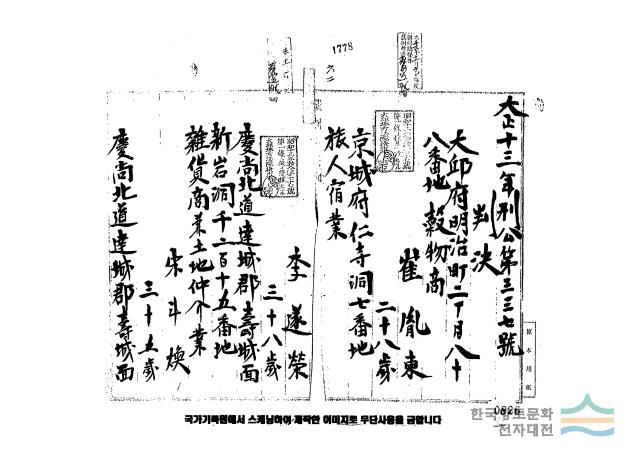 1778
六二
大正十三年刑公第三三七號
判決
大邱府明治町二丁目八十
八番地 穀物商
崔胤東
二十八歲
京城府仁寺洞七番地
旅人宿業
李遂榮
三十八歲
慶尚北道達城郡壽城面
新岩洞千二百十五番地
雜貨商兼土地仲介業
宋斗煥
三十五歲
慶尚北道達城郡壽城面
原本用紙
0826
국가기록원에서 스캐닝하여 제작한 이미지로 무단사용을 금합니다
한국향토문화
전자대전